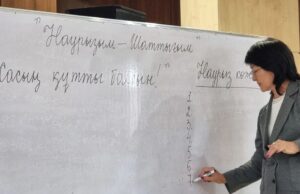 "Наурызым – Шаттығым"
Жасың құтты болсын!"
Наурыз
1
2
3